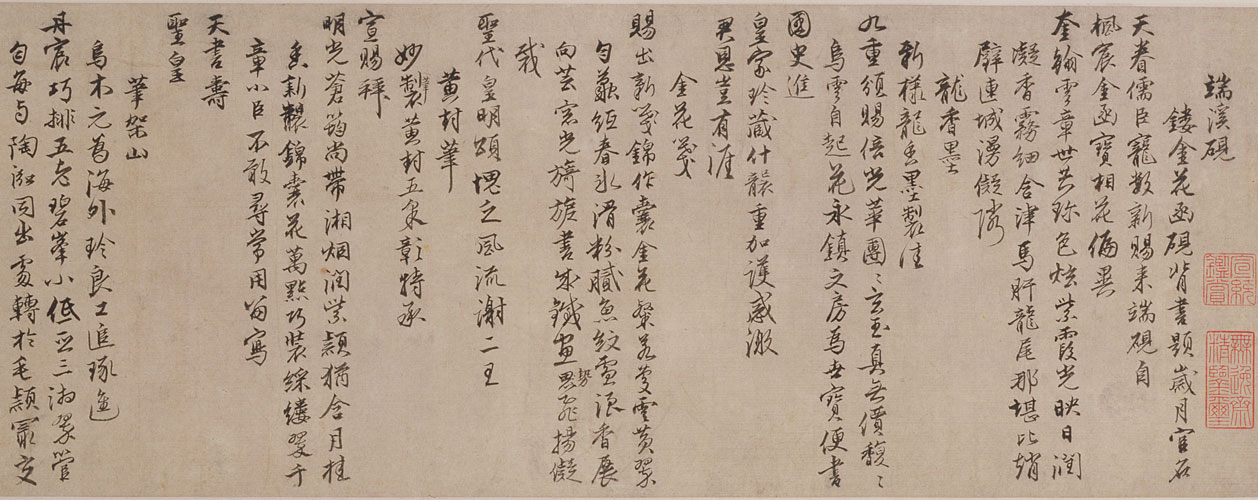 端溪硯
鏤金花函硯背書題歲月官名
天眷儒臣寵數新賜来端硯自
楓宸金函寶相花
奎翰雲章世共珍色炫紫霞光映日潤
凝香霧細含津馬肝龍尾那堪比
璧連城湧儗
龍香墨
新樣龍香墨製佳
九重頒賜倍光華團〻玄玉真無價馥〻
烏雲自起花永鎮文房為世寶便書
國史進
皇家珍藏什襲重加護感激
君恩豈有涯
金花箋
賜出新箋錦作囊金花粲若
匀蠶紙春冰滑粉膩魚紋雪浪香展
向芸窓光旖旎書成鐵畫勢飛揚儗
哉
聖代皇明頌愧乏風流謝二王
黄封筆
妙製黄封五色彰特承
宣賜拜
明光蒼筠尚帶湘烟潤紫穎猶含月桂
香新製錦囊花萬點巧裝綵縷翠千
章小臣不敢尋常用留寫
天書壽
聖皇
筆架山
烏木元為海外珍良工追琢進
丹宸巧排五老碧峯小低亞三湘翠
自每与陶泓同出處轉於毛穎最交
宣統鑒賞
無逸齋精鑒璽